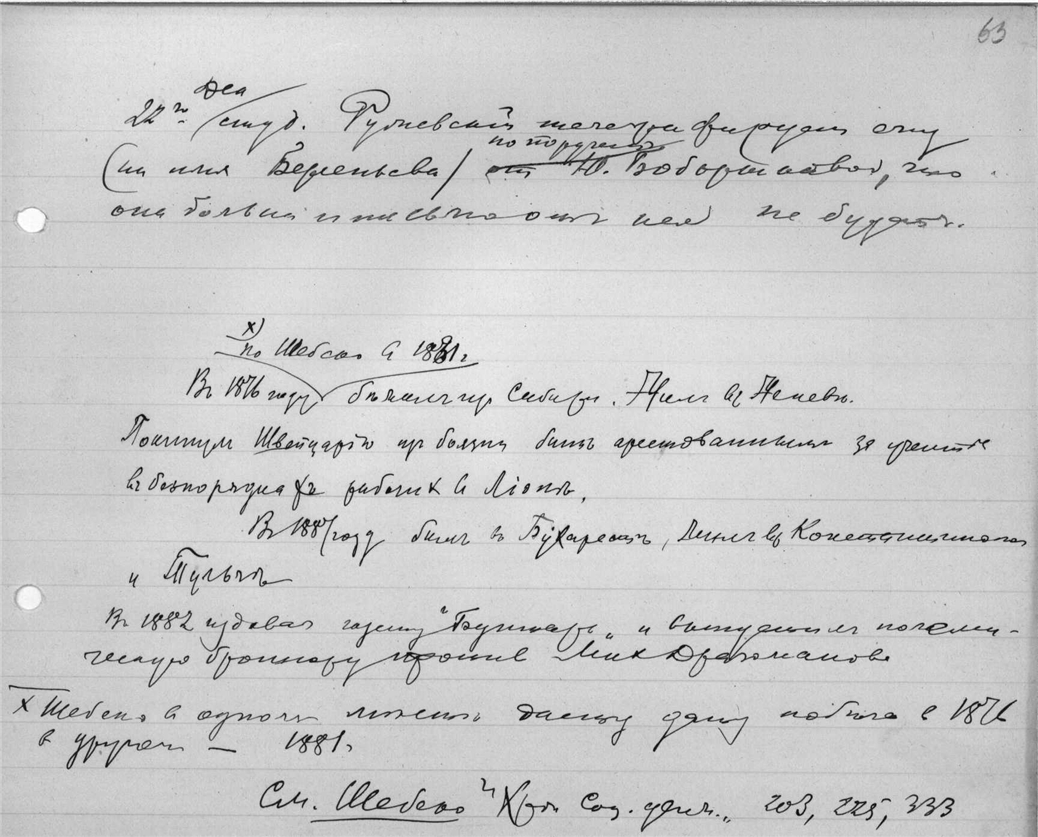 63
22го Дек
студ. Гулневский телеграфирует ему
(на имя Береньева) по поручен. Ю. Бобор, что
она больна и письма от нея не будет.
х)
по Шебеко в 1881 г
В 1876 году бежал из Сибири. Жил в Женеве.
Покинул Швейцарию из боязни быть арестованным за участие
в безпорядках рабочих в Лионе.
В 1881 году был в Бухаресте, жил в Константинополе
и Тульче
В 1882 издавал газету "Бунтарь" и выпустил полеми-
ческую брошюру против Мих Драгоманова
х Шебеко в одном месте дату побега в 1876
в другом — 1881.
См. Шебеко "Хрон Соц. движ.", 203, 225, 333